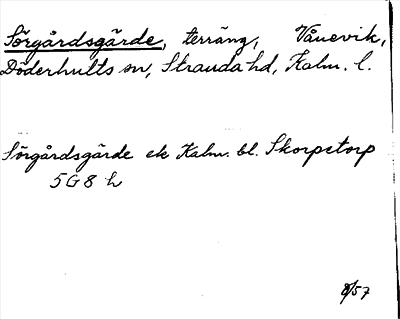 Sörgårdsgärde, terräng, Vånevik,
Döderhults sn, Stranda hd, Kalm. l.
Sörgårdsgärde ek Kalm. bl. Skorpetorp
5G8h
8/57